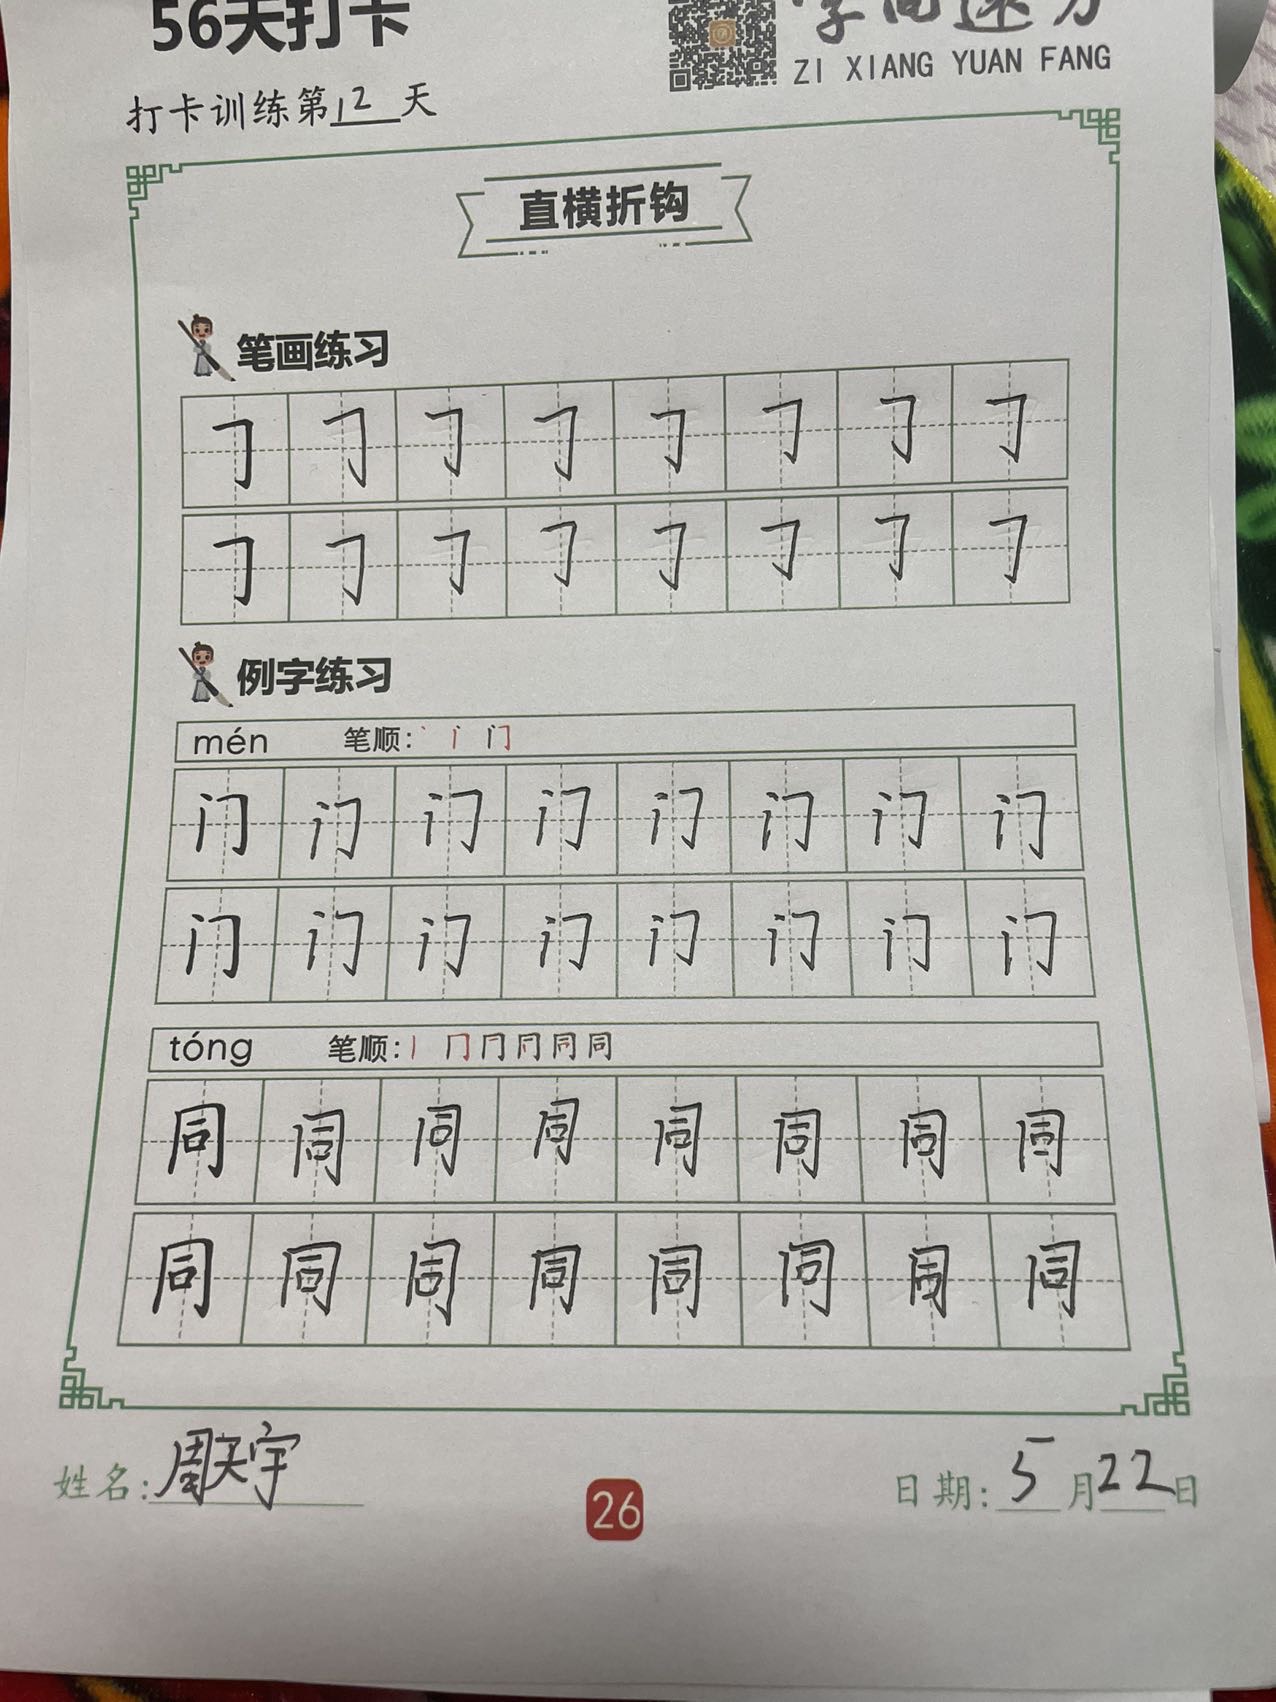 56天打卡
字向远方
ZI XIANG YUAN FANG
打卡训练第12天
直横折钩
笔画练习
𠃌 𠃌 𠃌 𠃌 𠃌 𠃌 𠃌 𠃌
𠃌 𠃌 𠃌 𠃌 𠃌 𠃌 𠃌 𠃌
例字练习
mén 笔顺: 丶 门
门 门 门 门 门 门 门 门
门 门 门 门 门 门 门 门
tóng 笔顺: 丨 冂 同
同 同 同 同 同 同 同 同
同 同 同 同 同 同 同 同
姓名: 周天宇
26
日期: 5月22日